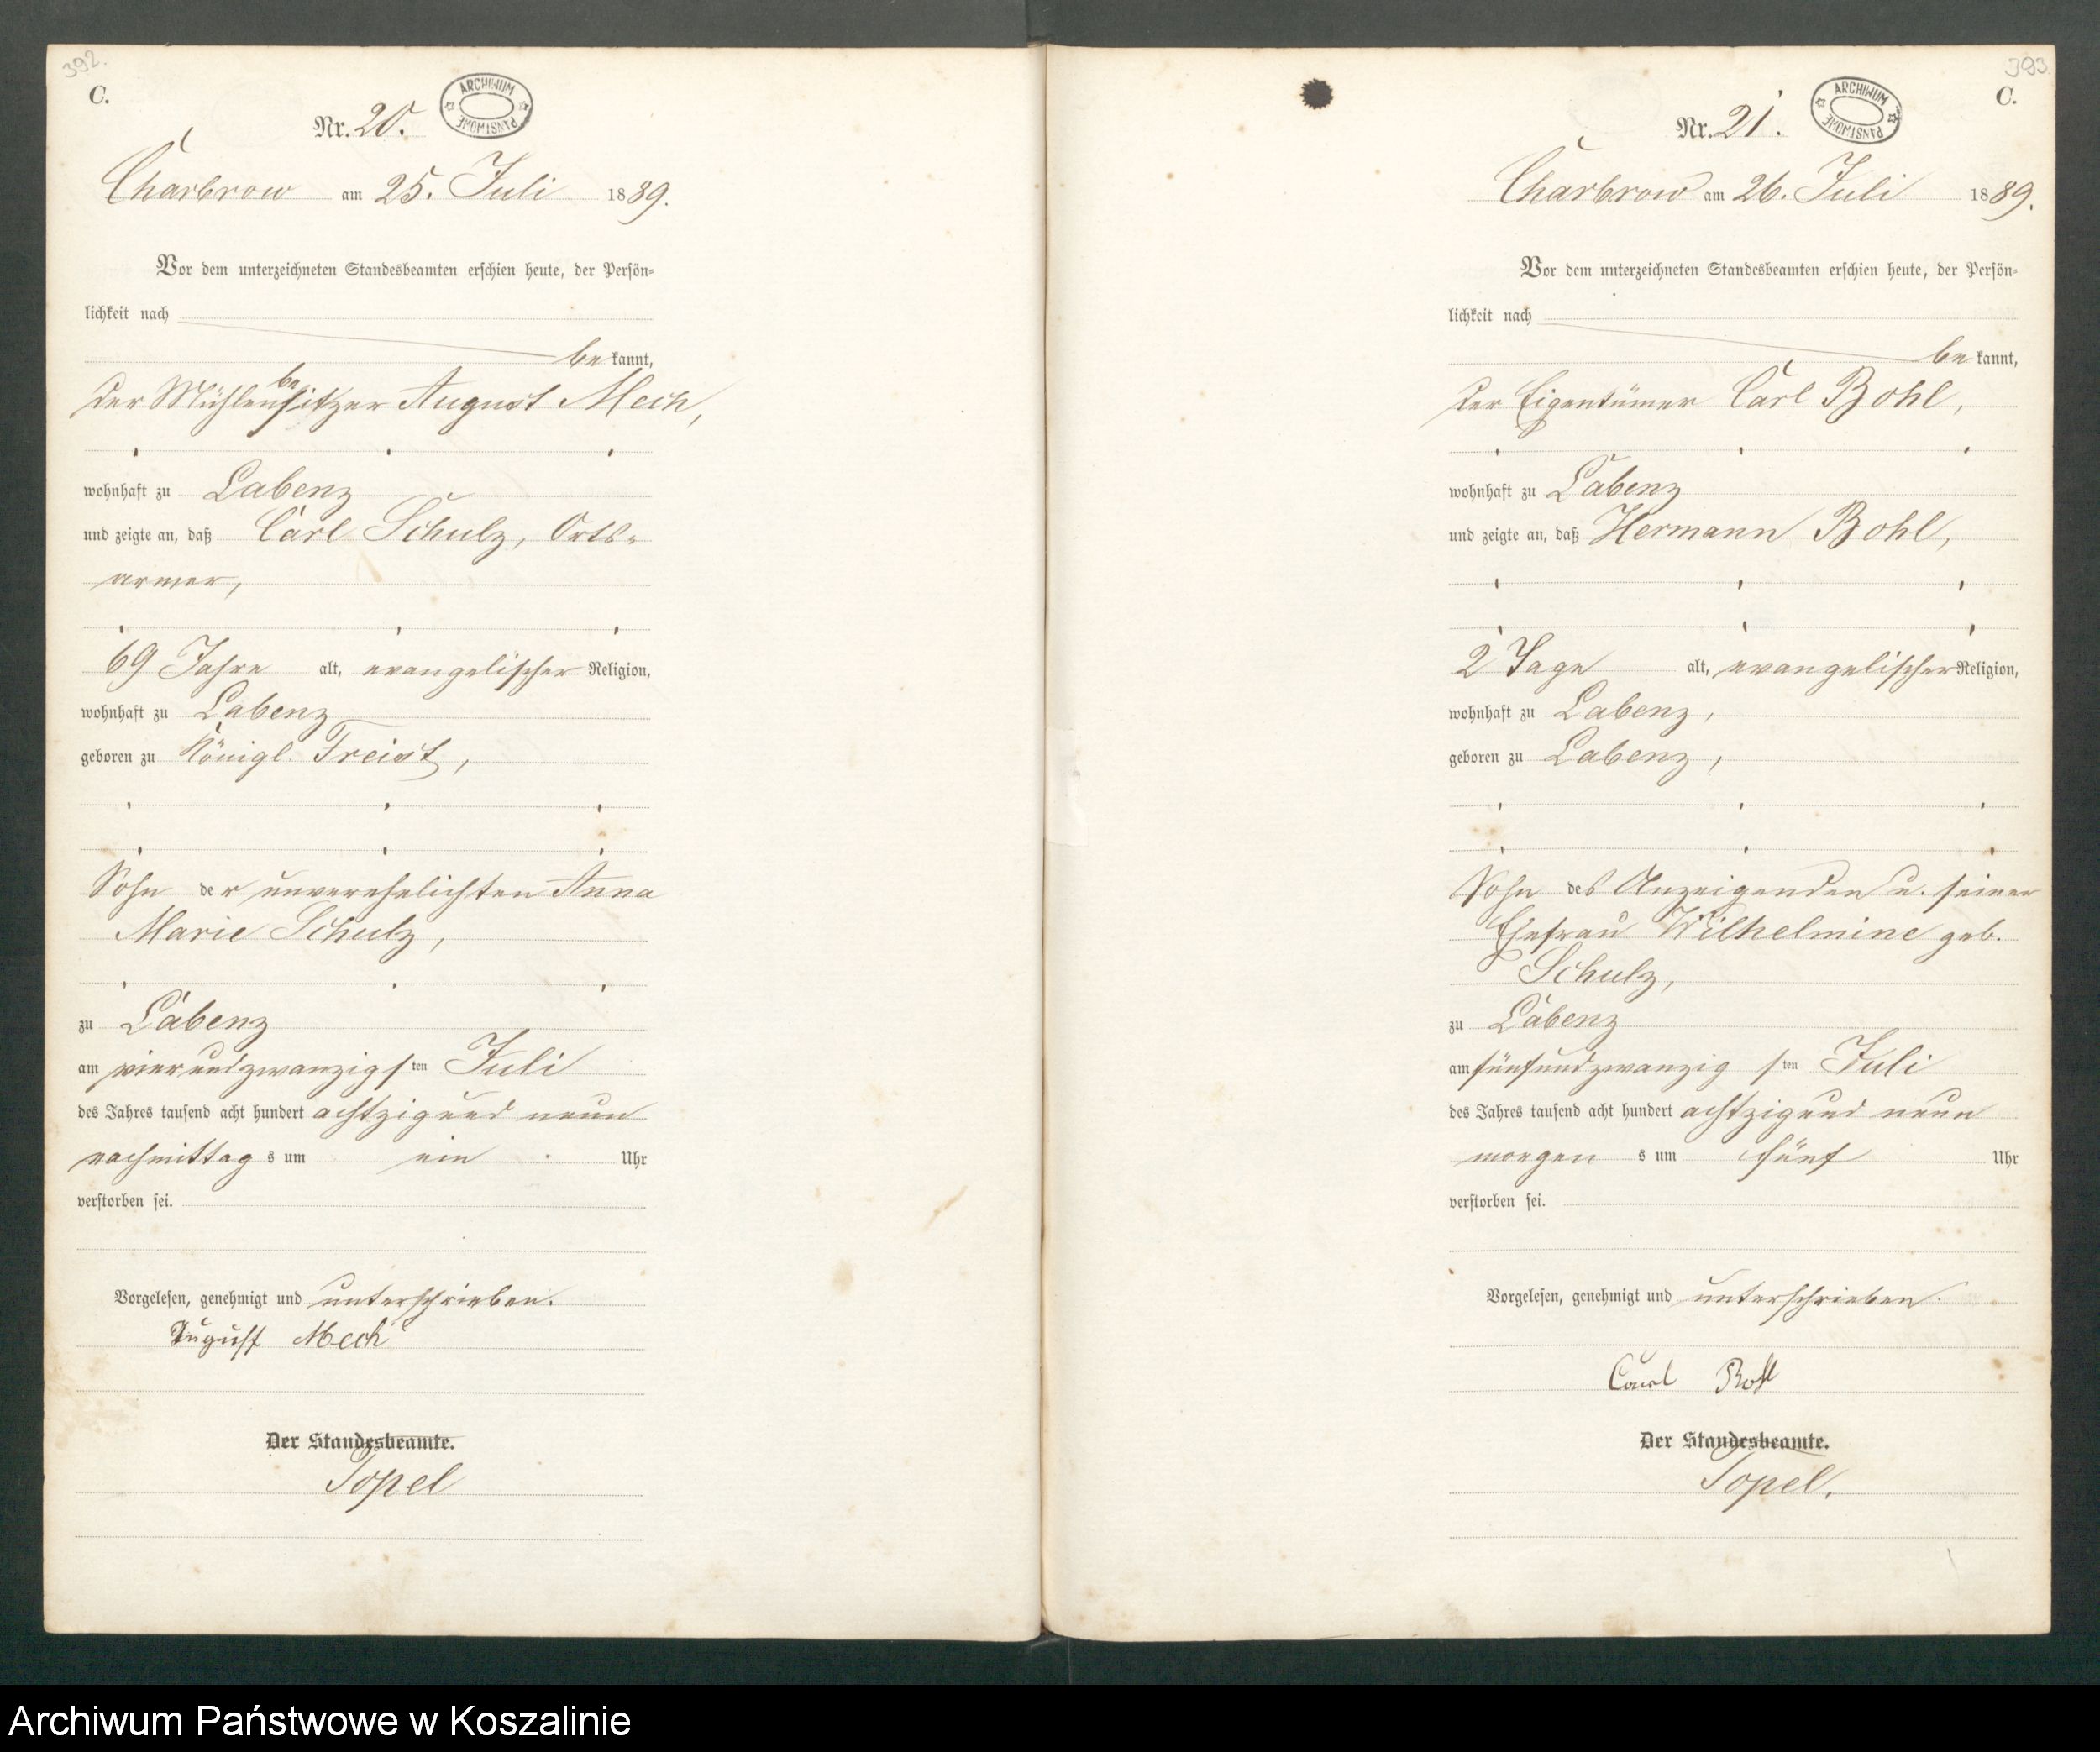 392.
C.
ARCHIWUM PAŃSTWOWE
Nr. 20.
Charbrow am 25. Juli 1889.
Vor dem unterzeichneten Standesbeamten erschien heute, der Persön-
lichkeit nach
be kannt,
der Mühlenbesitzer August Mech,
wohnhaft zu Labenz
und zeigte an, daß Carl Schulz, Orts-
armer,
69 Jahre alt, evangelischer Religion,
wohnhaft zu Labenz
geboren zu Königl. Freist,
Sohn der unverehelichten Anna
Marie Schulz,
zu Labenz
am vierundzwanzigsten Juli
des Jahres tausend acht hundert achtzigund neun
nachmittags um ein Uhr
verstorben sei.
Vorgelesen, genehmigt und unterschrieben.
August Mech
Der Standesbeamte.
Topel
393.
C.
ARCHIWUM PAŃSTWOWE
Nr. 21.
Charbrow am 26. Juli 1889.
Vor dem unterzeichneten Standesbeamten erschien heute, der Persön-
lichkeit nach
be kannt,
der Eigentümer Carl Bohl,
wohnhaft zu Labenz
und zeigte an, daß Hermann Bohl,
2 Tage alt, evangelischer Religion,
wohnhaft zu Labenz,
geboren zu Labenz,
Sohn des Anzeigenden u. seiner
Ehefrau Wilhelmine geb.
Schulz,
zu Labenz
am fünfundzwanzig sten Juli
des Jahres tausend acht hundert achtzigund neun
morgens um fünf Uhr
verstorben sei.
Vorgelesen, genehmigt und unterschrieben.
Carl Bohl
Der Standesbeamte.
Topel.
Archiwum Państwowe w Koszalinie